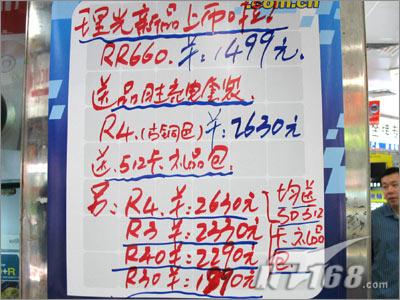 .com.cn
理光新品上市啦!
RR660.羊:1499元
送品胜充电套装
R4.(古铜色)羊:2630元
送.512卡.礼品包.
另:R4.羊:2630元
R3羊:2330元
R40羊:2290元
R30羊:1990元
均送
SD512
卡.礼品
包
IT168.com